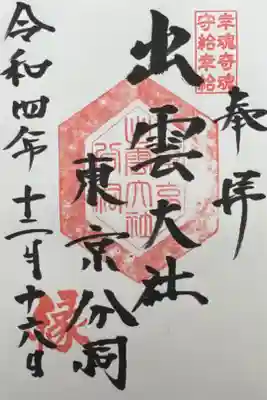 幸魂奇魂
守給幸給
奉拝
出雲大社
東京分祠
出雲大社
令和四年十二月十六日
縁